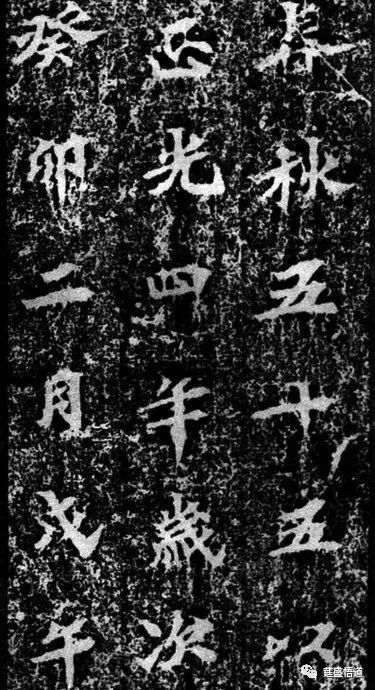 春秋五十五以
正光四年歲次
癸卯二月戊午
莛盛悟道